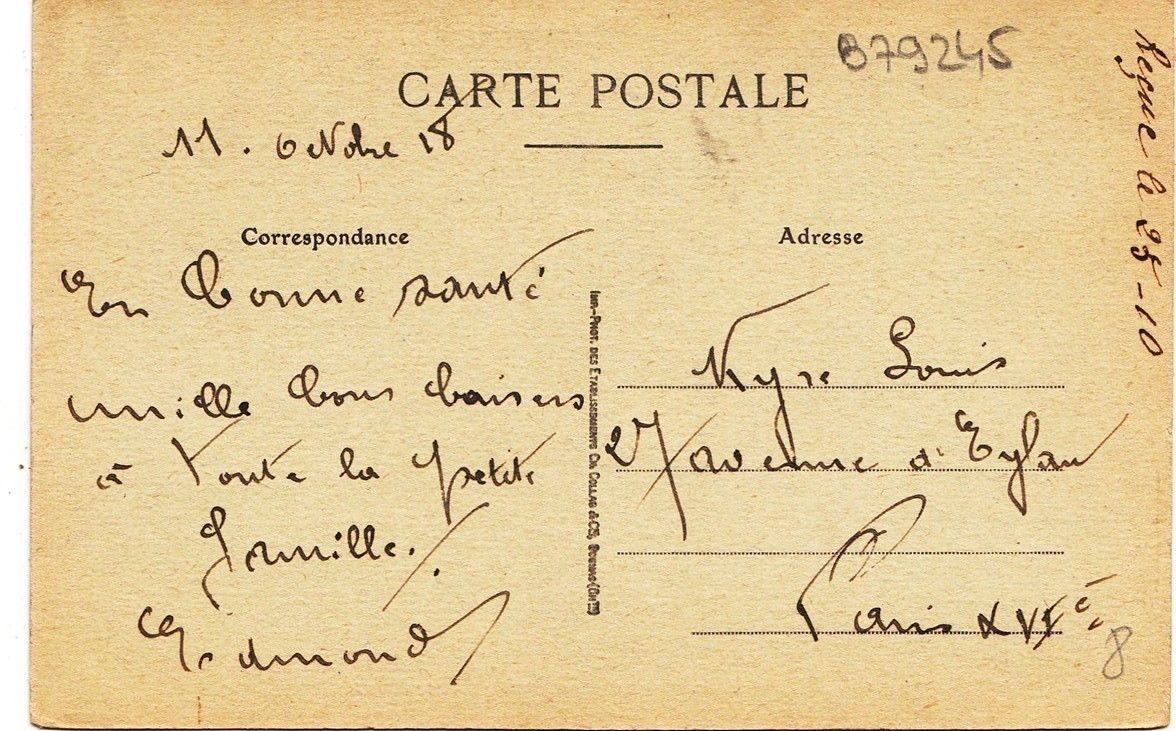 B79245
CARTE POSTALE
11. octobre 18
Correspondance
En bonne santé
mille bons baisers
à toute la petite
famille.
Edmond
Imp.-Phot. des Etablissements Ch. Collas & Cie, Cognac (Chte)
Adresse
Louis
27 avenue d'Eylau
Paris XVIe
Reçue le 25-10
8